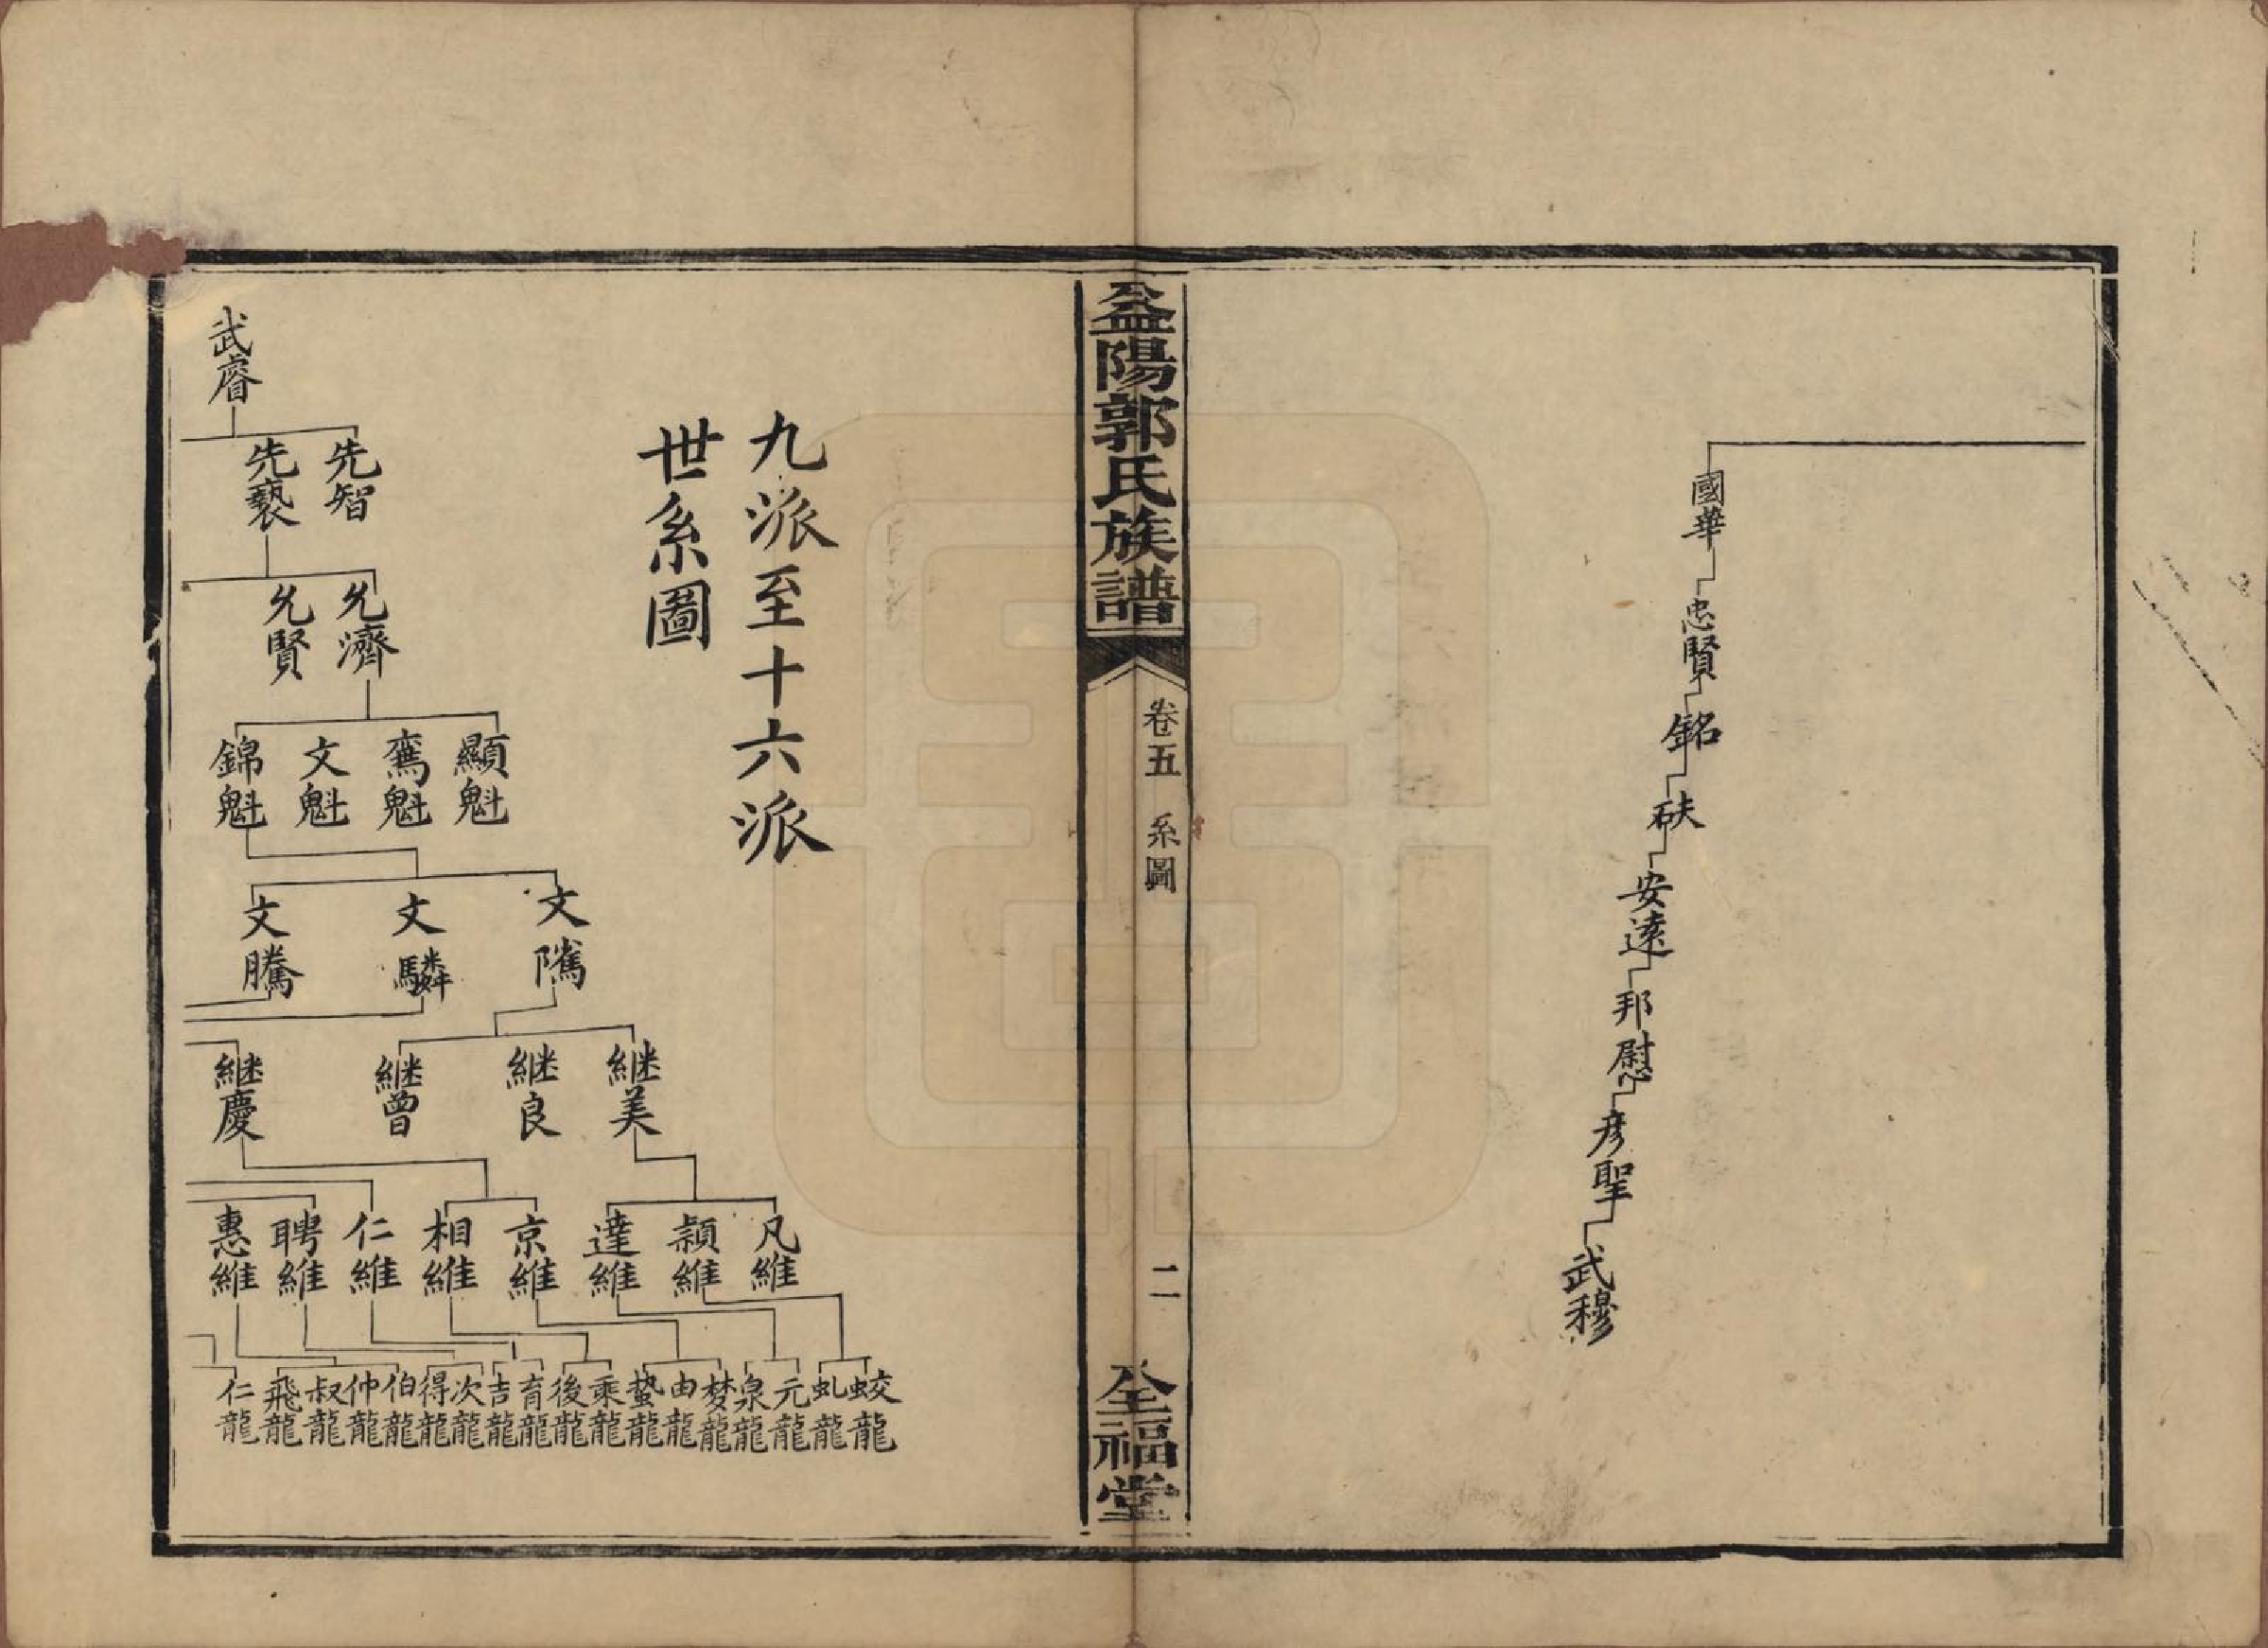 國華
忠賢
銘
砆
安遠
邦慰
彦聖
武穆
益陽郭氏族譜
卷五 系圖
二
全福堂
九派至十六派
世系圖
武睿
先智
先褻
允濟
允賢
顯魁
鶱魁
文魁
錦魁
文隲
文驎
文騰
継美
継良
継曾
継慶
凡維
穎維
達維
京維
相維
仁維
聘維
惠維
蛟龍
虬龍
元龍
泉龍
梦龍
由龍
蛰龍
乘龍
後龍
育龍
吉龍
次龍
得龍
伯龍
仲龍
叔龍
飛龍
仁龍